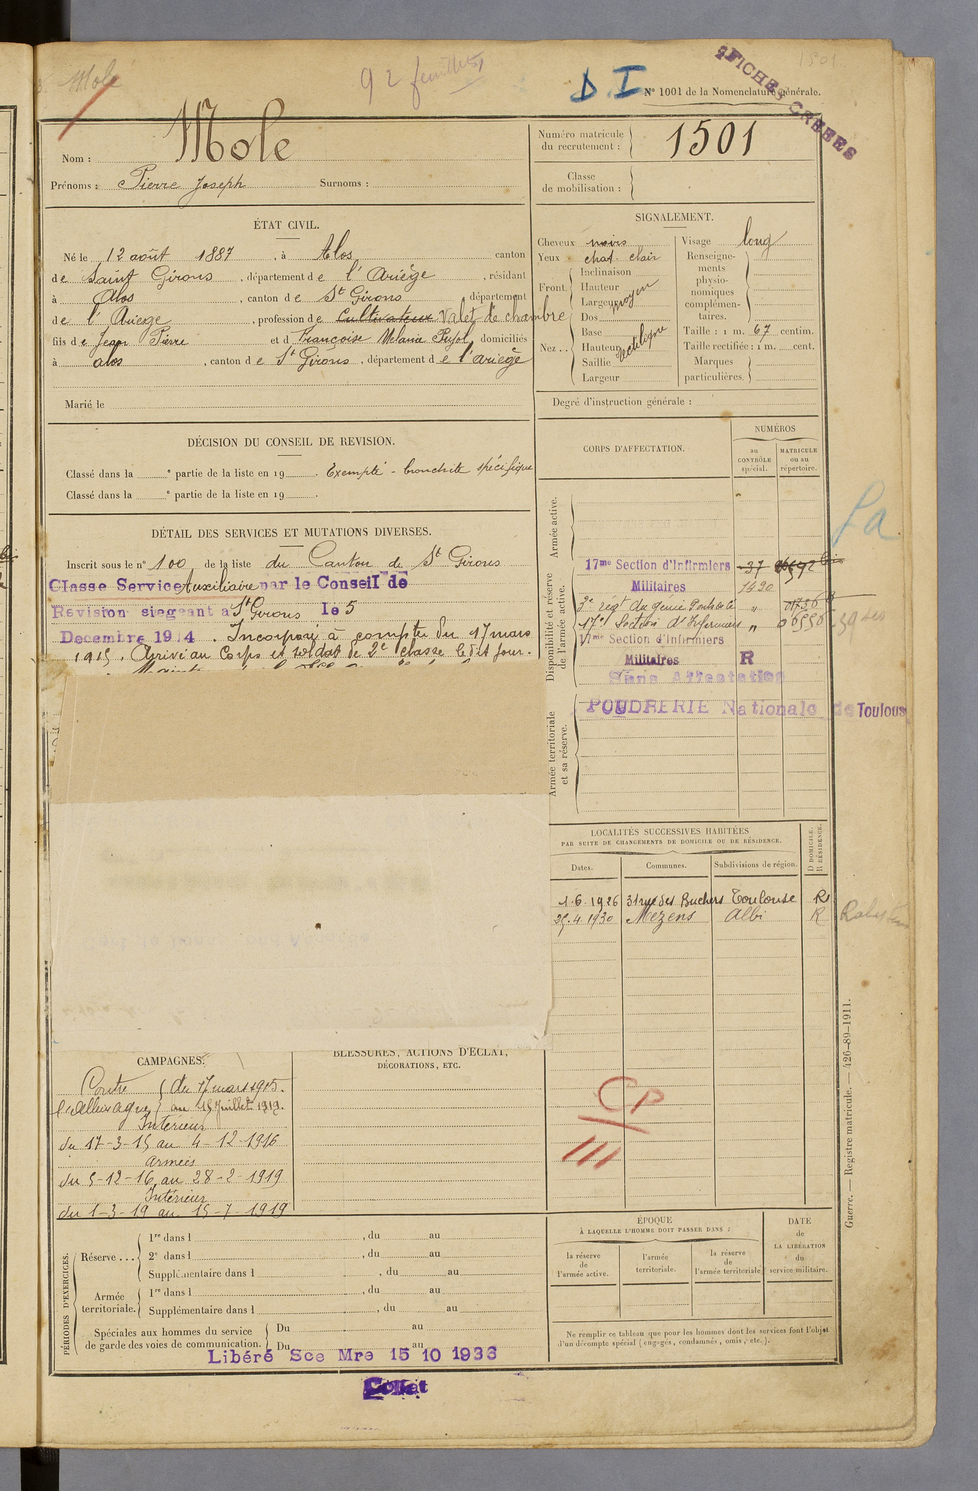 Mole
92 feuillets
D.I.
FICHES CRÉÉES
1501
N° 1001 de la Nomenclature générale.
Nom : Mole
Prénoms : Pierre Joseph Surnoms :
Numéro matricule du recrutement : 1501
Classe de mobilisation :
ÉTAT CIVIL.
Né le 12 août 1887, à Alos, canton
de Saint Girons, département de l'Ariège, résidant
à Alos, canton de St Girons, département
de l'Ariege, profession de Cultivateur Valet de chambre
fils de Jean Pierre et de Françoise Melanie Pujol, domiciliés
à alos, canton de St Girons, département de l'ariège
Marié le
SIGNALEMENT.
Cheveux noirs
Yeux chat. clair
Front.
Inclinaison
Hauteur
Largeur moyen
Nez..
Dos
Base
Hauteur rectiligne
Saillie
Largeur
Visage long
Renseignements physionomiques complémentaires.
Taille : 1 m. 67 centim.
Taille rectifiée : 1 m. cent.
Marques particulières.
Degré d'instruction générale :
DÉCISION DU CONSEIL DE REVISION.
Classé dans la e partie de la liste en 19 . Exempté - bronchite spécifique
Classé dans la e partie de la liste en 19 .
DÉTAIL DES SERVICES ET MUTATIONS DIVERSES.
Inscrit sous le n° 100 de la liste du Canton de St Girons
Classe Service Auxiliaire par le Conseil de
Revision siegeant a St Girons le 5
Decembre 1914. Incorporé à compter du 17 mars
1915. Arrivé au Corps et soldat de 2e classe le dit jour.
CORPS D'AFFECTATION.
NUMÉROS
au CONTRÔLE spécial.
MATRICULE ou au répertoire.
Armée active.
Disponibilité et réserve de l'armée active.
Armée territoriale et sa réserve.
17me Section d'Infirmiers 37
Militaires 1430
2e régt du génie
17e Section d'Infirmiers " 06556
17me Section d'Infirmiers
Militaires R
Sans Affectation
POUDRERIE Nationale de Toulouse
LOCALITÉS SUCCESSIVES HABITÉES
PAR SUITE DE CHANGEMENTS DE DOMICILE OU DE RÉSIDENCE.
Dates. Communes. Subdivisions de région. D DOMICILE. R RÉSIDENCE.
1.6.1926 31 rue des Buchers Toulouse R
25.4.1930 Mézens Albi R
CAMPAGNES.
Contre du 17 mars 1915.
l'Allemagne au 15 Juillet 1919.
Intérieur
du 17-3-15 au 4-12-1916
Armées
du 5-12-16 au 28-2-1919
Intérieur
du 1-3-19 au 15-7-1919
BLESSURES, ACTIONS D'ÉCLAT,
DÉCORATIONS, ETC.
CP
III
PÉRIODES D'EXERCICES.
Réserve...
1re dans l , du au
2e dans l , du au
Supplémentaire dans l , du au
Armée territoriale.
1re dans l , du au
Supplémentaire dans l , du au
Spéciales aux hommes du service de garde des voies de communication.
Du au
Du au
Libéré Sce Mre 15 10 1936
ÉPOQUE
À LAQUELLE L'HOMME DOIT PASSER DANS :
la réserve de l'armée active.
l'armée territoriale.
la réserve de l'armée territoriale
DATE de LA LIBÉRATION du service militaire.
Ne remplir ce tableau que pour les hommes dont les services font l'objet
d'un décompte spécial (engagés, condamnés, omis, etc.).
Guerre. — Registre matricule. — 426-89-1911.